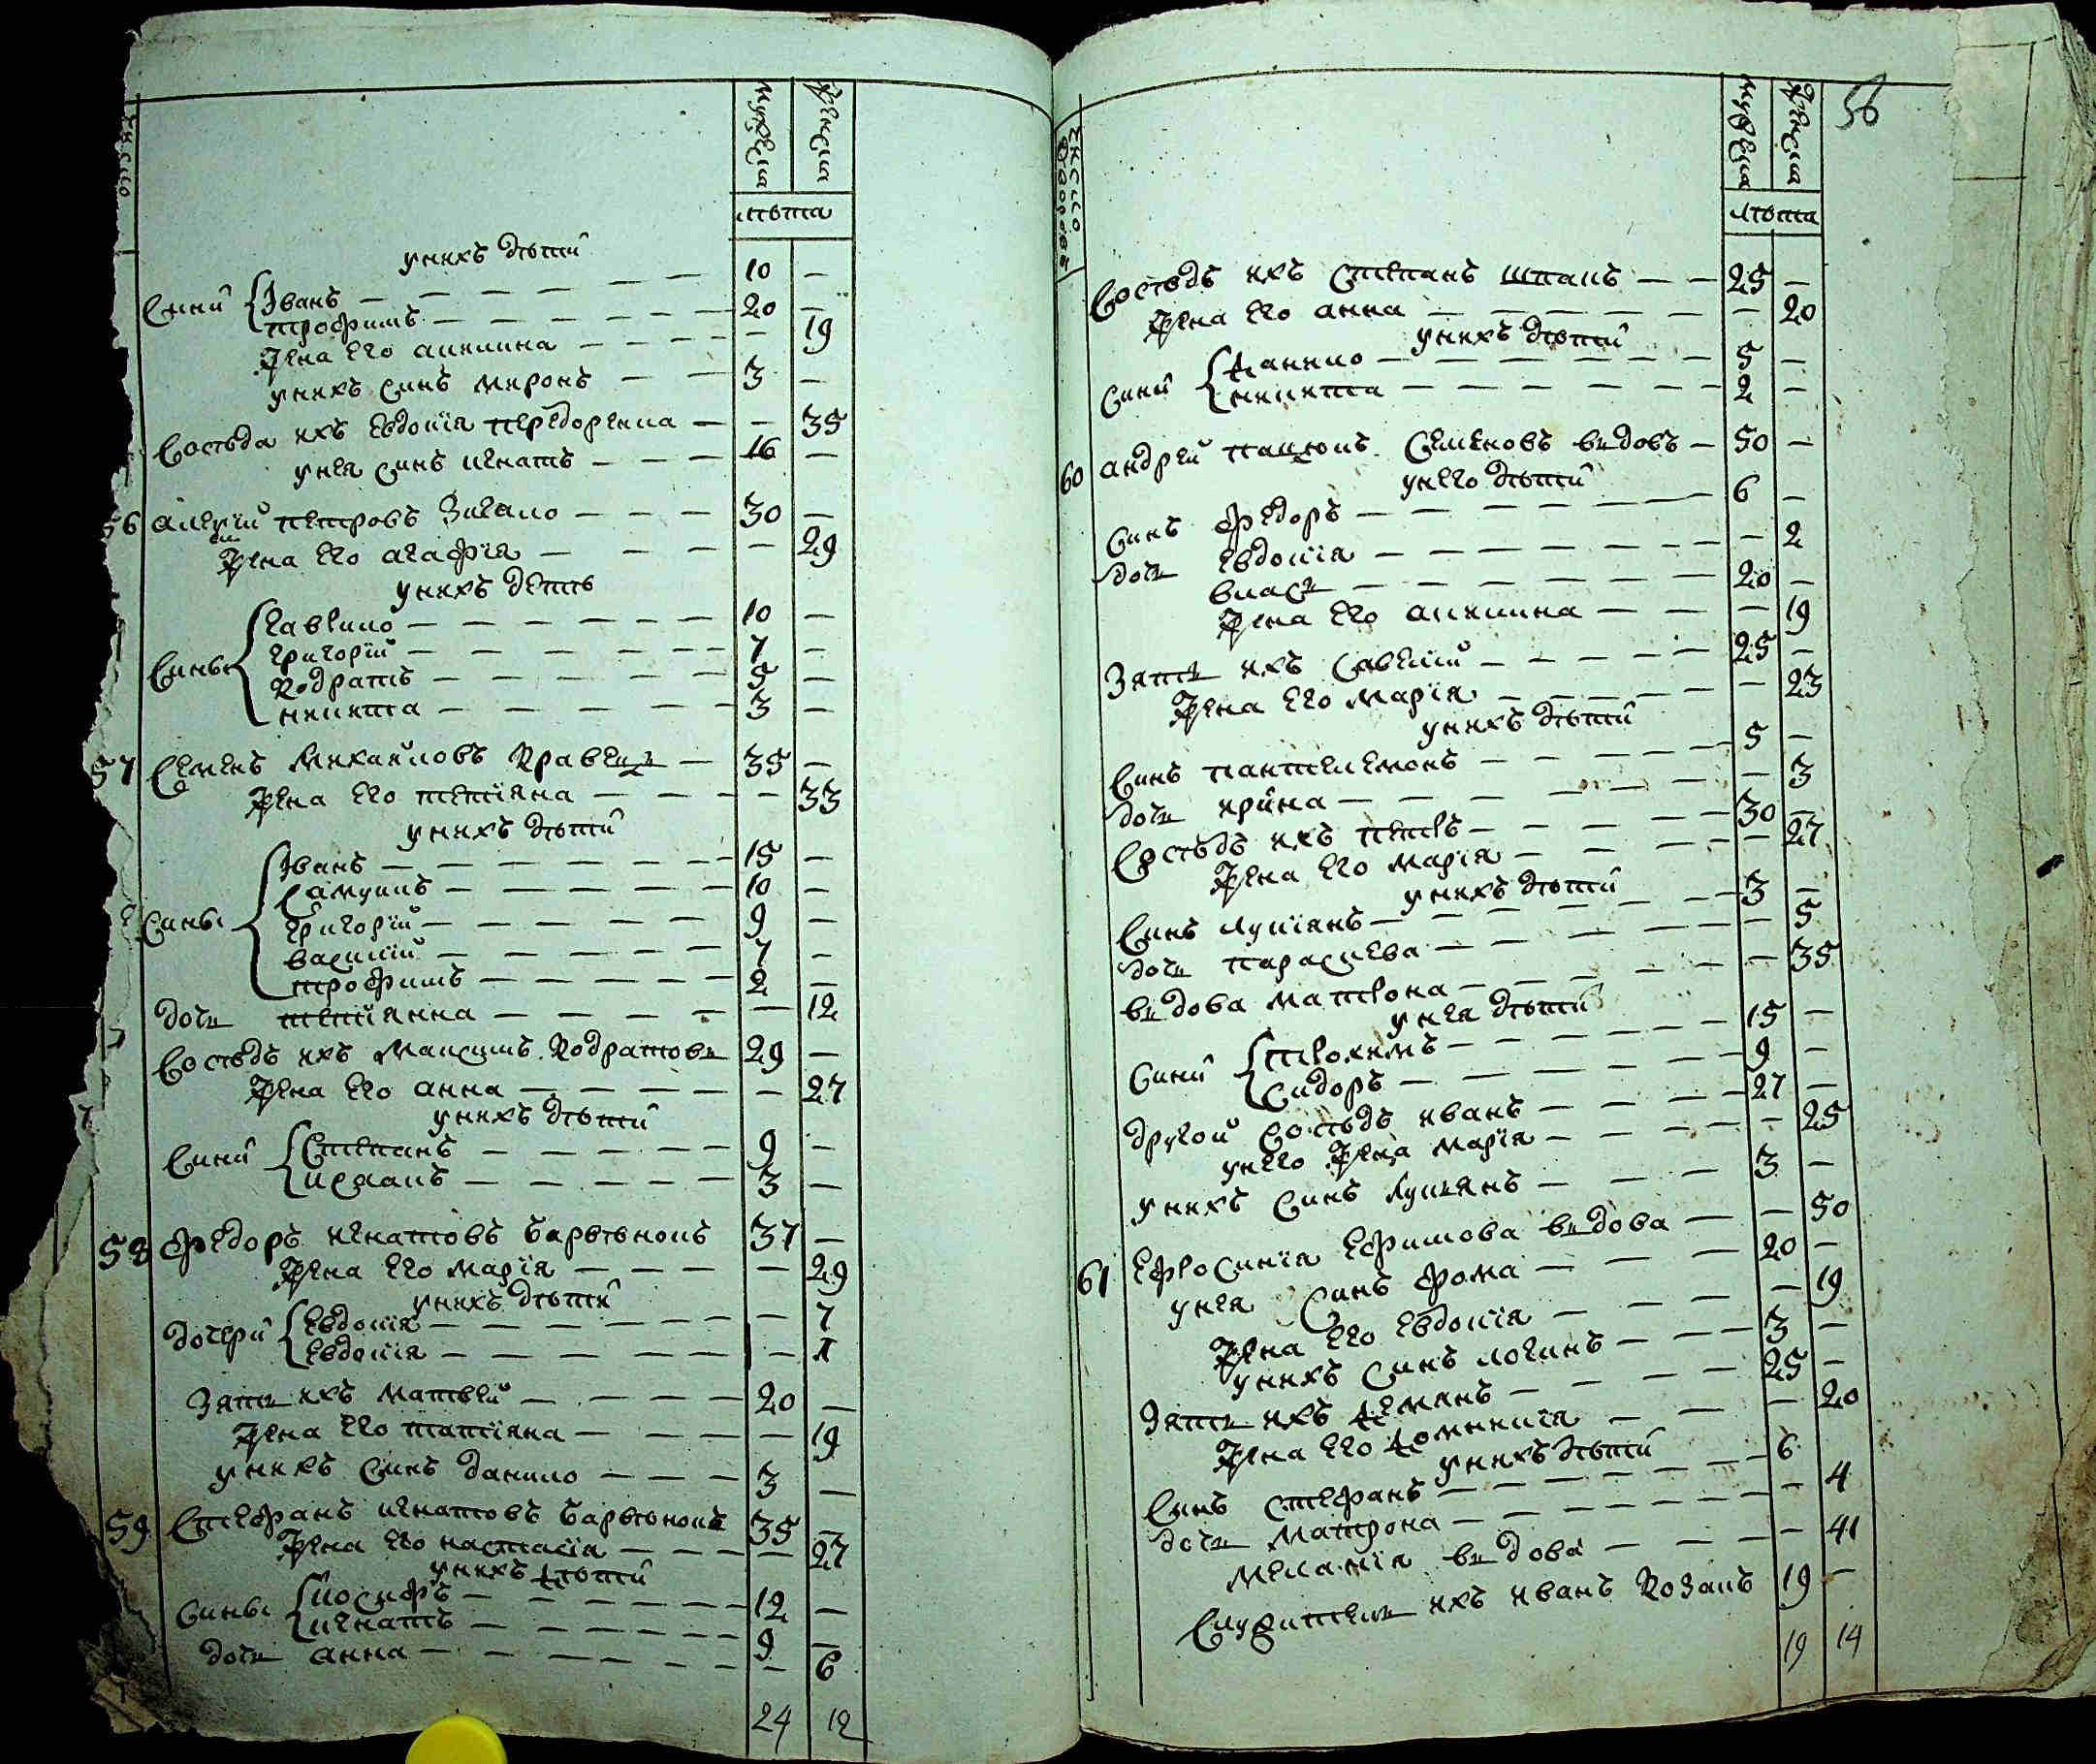 число
мужеска
женска
лѣта
у нихъ дѣти
Сини
Іванъ — 10 —
трофимъ — 20 —
Жена его акилина — — 19
у нихъ синъ миронъ — 3 —
Сосѣда ихъ евдокїя — — 35
у нея синъ игнатъ — 16 —
56 алеѯїй петровъ — 30 —
Жена его агафїя — — 29
у нихъ дети
Сины
гаврило — 10 —
григорїй — 7 —
Кодратъ — 5 —
никита — 3 —
57 Семенъ Михайловъ Кравецъ — 35 —
Жена его тетїяна — — 33
у нихъ дѣти
Сины
Іванъ — 15 —
Самуилъ — 10 —
григорїй — 9 —
василїй — 7 —
трофимъ — 2 —
дочь тетїянна — — 12
Сосѣдъ ихъ Максимъ Кодратовъ 29 —
Жена его анна — — 27
у нихъ дѣти
Сини
Степанъ — 9 —
исаакъ — 3 —
58 федоръ игнатовъ 37 —
Жена его марїя — — 29
у нихъ дѣти
дочери
евдокїя — — 7
евдокїя — — 1
Зять ихъ матвѣй — 20 —
Жена его татїяна — — 19
у нихъ синъ данило — 3 —
59 Стефанъ игнатовъ 35 —
Жена его настасїя — — 27
у нихъ дѣти
Сины
иосифъ — 12 —
игнатъ — 9 —
дочь анна — — 6
24 12
56
число дворовъ
мужеска
женска
лѣта
Сосѣдъ ихъ Степанъ — 25 —
Жена его анна — — 20
у нихъ дѣти
Сини
данило — 5 —
никита — 2 —
60 андрей пацюкъ Семеновъ вьдовъ — 50 —
у него дѣти
Синъ федоръ — 6 —
дочь евдокїя — — 2
власъ — 20 —
Жена его акилина — — 19
Зять ихъ Савелїй — 25 —
Жена его марїя — — 23
у нихъ дѣти
Синъ пантелемонъ — 5 —
дочь ирина — — 3
Сосѣдъ ихъ петръ — 30 —
Жена его марїя — — 27
у нихъ дѣти
Синъ лукїянъ — 3 —
дочь параскева — — 5
вьдова матрона — — 35
у нея дѣти
Сини
трохимъ — 15 —
Сидоръ — 9 —
другой сосѣдъ иванъ — 27 —
у него жена марїя — — 25
у нихъ Синъ лукьянъ — 3 —
61 ефросинїя ефимова вьдова — — 50
у нея Синъ фома — 20 —
Жена его евдокїя — — 19
у нихъ Синъ логинъ — 3 —
Зять ихъ демянъ — 25 —
Жена его домникїя — — 20
у нихъ дѣти
Синъ стефанъ — 6
дочь матрона — — 4
меланїя вьдова — — 41
Служитель ихъ иванъ Козакъ 19 —
19 14